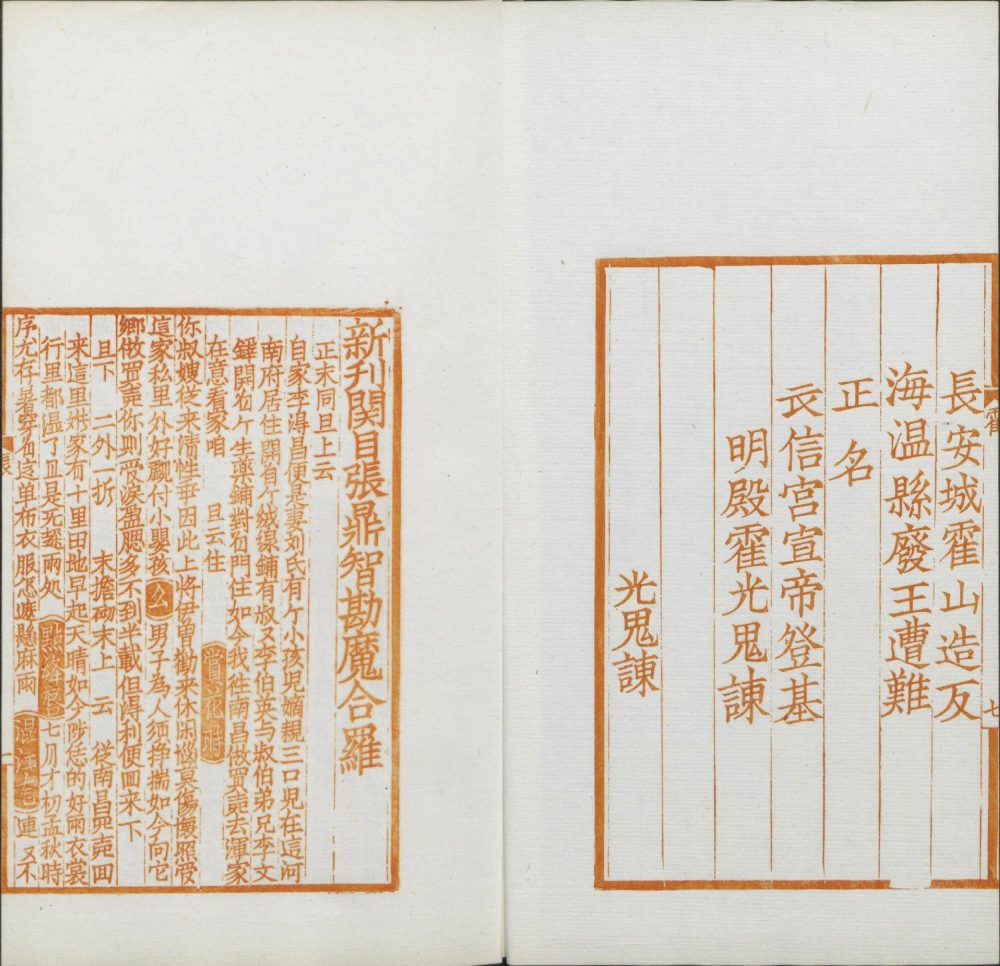 長安城霍山造反
海温縣廢王遭難
正名
㐮信宫宣帝登基
明殿霍光鬼諫
光鬼諫
霍
七
新刊関目張鼎智勘魔合羅
正末同旦上云
自家李淂昌便是妻刘氏有个小孩児嫡親三口児在這河
南府居住開着个絨線鋪有叔叔李伯英与叔伯弟兄李文
鐸開着个生藥鋪對着門住如今我徃南昌做買賣去渾家
在意看家咱 旦云住 賞花時
你叔嫂従来情性乖因此上将伊曽勸来休閑惱莫傷懐照覷
這家私里外好覷付小嬰孩 么 男子為人須挣揣如今向它
郷做買賣你則管淚盈腮多不到半載但得利便回来下
旦下 二外一折 末擔砌末上 云 從南昌買賣回
来這里姝家有十里田地早起天晴如今陟恁的好雨衣裳
行里都湿了且是无躱雨処 點絳唇 七月才初孟秋時
序尤存暑穿着這单布衣服怎遮懸麻雨 混江龍 連又不
張
一